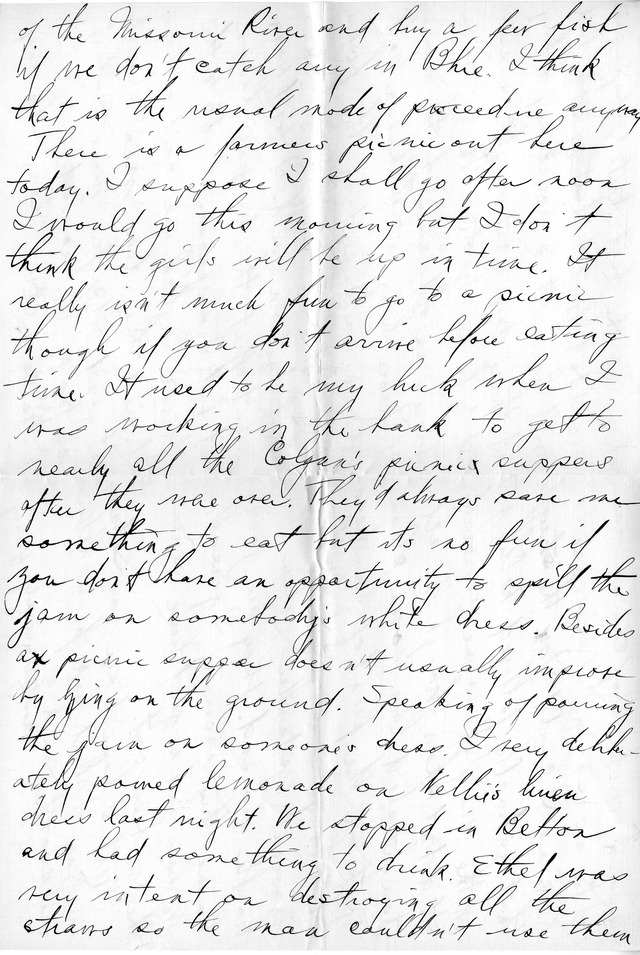 of the Missouri River and buy a few fish
if we don't catch any in Blue. I think
that is the usual mode of proceedure anyway
There is a farmers picnic out here
today. I suppose I shall go after noon
I would go this morning but I don't
think the girls will be up in time. It
really isn't much fun to go to a picnic
though if you don't arrive before eating
time. It used to be my luck when I
was working in the bank to get to
nearly all the Colgan's picnic suppers
after they were over. They'd always save me
something to eat but it's no fun if
you don't have an opportunity to spill the
jam on somebody's white dress. Besides
a picnic supper doesn't usually improve
by lying on the ground. Speaking of pouring
the jam on someone's dress. I very deliber-
ately poured lemonade on Nellie's linen
dress last night. We stopped in Belton
and had something to drink. Ethel was
very intent on destroying all the
straws so the man couldn't use them